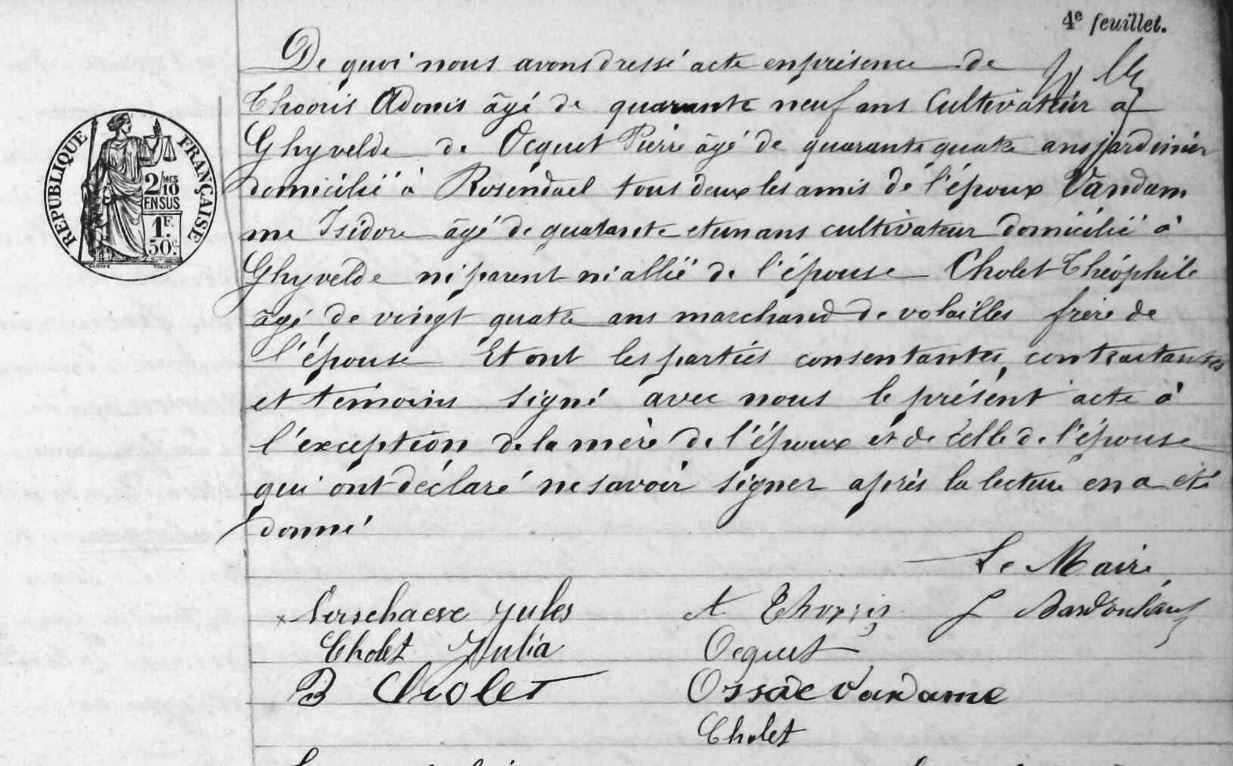 4e feuillet.
De quoi nous avons dressé acte en présence de
Thooris Adonis âgé de quarante neuf ans Cultivateur à
Ghyvelde de Ocquet Pierre âgé de quarante quatre ans jardinier
domicilié à Rosendael tous deux les amis de l'époux Vandam
me Isidore âgé de quarante et un ans cultivateur domicilié à
Ghyvelde ni parent ni allié de l'épouse Cholet Théophile
âgé de vingt quatre ans marchand de volailles frère de
l'épouse Et ont les parties consentantes, contractantes
et témoins signé avec nous le présent acte à
l'exception de la mère de l'époux et de celle de l'épouse
qui ont déclaré ne savoir signer après la lecture en a été
donné
RÉPUBLIQUE FRANÇAISE
2/10MES
EN SUS
1F.
50c.
Le Maire
Verschaeve Jules
A Thooris
Cholet Julia
Ocquet
B Cholet
Vandame
Cholet